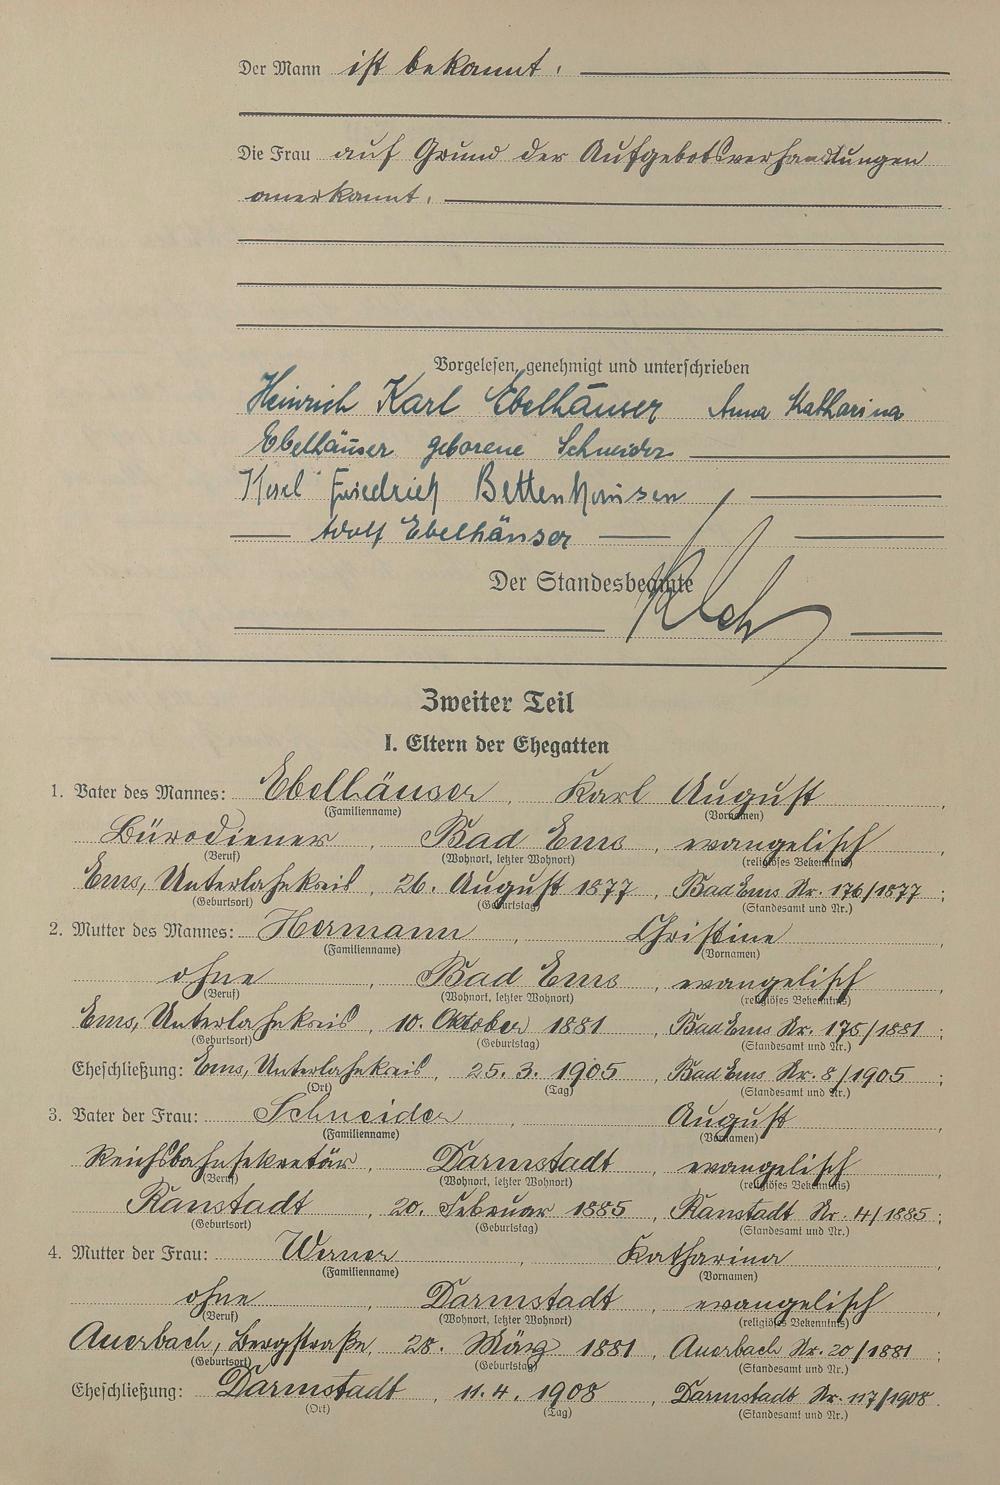 Der Mann ist bekannt.
Die Frau auf Grund der Aufgebotsverhandlungen
anerkannt.
Vorgelesen, genehmigt und unterschrieben
Heinrich Karl Ebelhäuser Anna Katharina
Ebelhäuser geborene Schneider
Karl Friedrich Bettenhausen
Adolf Ebelhäuser
Der Standesbeamte
Zweiter Teil
I. Eltern der Ehegatten
1. Vater des Mannes: Ebelhäuser, Karl August,
(Familienname) (Vornamen)
Bürodiener, Bad Ems, evangelisch,
(Beruf) (Wohnort, letzter Wohnort) (religiöses Bekenntnis)
Ems, Unterlahnkreis, 26. August 1877, Bad Ems Nr. 176/1877;
(Geburtsort) (Geburtstag) (Standesamt und Nr.)
2. Mutter des Mannes: Hermann, Christine,
(Familienname) (Vornamen)
ohne, Bad Ems, evangelisch,
(Beruf) (Wohnort, letzter Wohnort) (religiöses Bekenntnis)
Ems, Unterlahnkreis, 10. Oktober 1881, Bad Ems Nr. 175/1881;
(Geburtsort) (Geburtstag) (Standesamt und Nr.)
Eheschließung: Ems, Unterlahnkreis, 25. 3. 1905, Bad Ems Nr. 8/1905;
(Ort) (Tag) (Standesamt und Nr.)
3. Vater der Frau: Schneider, August,
(Familienname) (Vornamen)
Reichsbahnsekretär, Darmstadt, evangelisch,
(Beruf) (Wohnort, letzter Wohnort) (religiöses Bekenntnis)
Ranstadt, 20. Februar 1885, Ranstadt Nr. 4/1885;
(Geburtsort) (Geburtstag) (Standesamt und Nr.)
4. Mutter der Frau: Werner, Katharina,
(Familienname) (Vornamen)
ohne, Darmstadt, evangelisch,
(Beruf) (Wohnort, letzter Wohnort) (religiöses Bekenntnis)
Auerbach, Bergstraße, 28. März 1881, Auerbach Nr. 20/1881;
(Geburtsort) (Geburtstag) (Standesamt und Nr.)
Eheschließung: Darmstadt, 11. 4. 1908, Darmstadt Nr. 117/1908.
(Ort) (Tag) (Standesamt und Nr.)